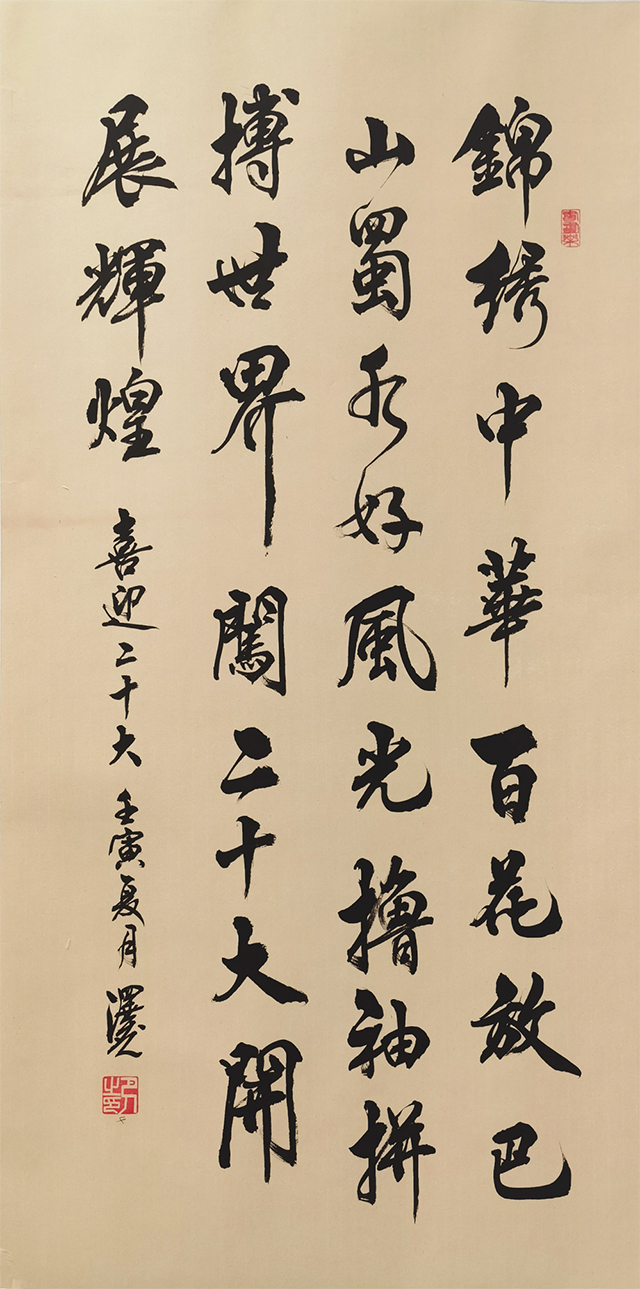 錦绣中華百花放巴
山蜀水好風光擼袖拼
搏世界闖二十大開
展輝煌
喜迎二十大 壬寅夏月